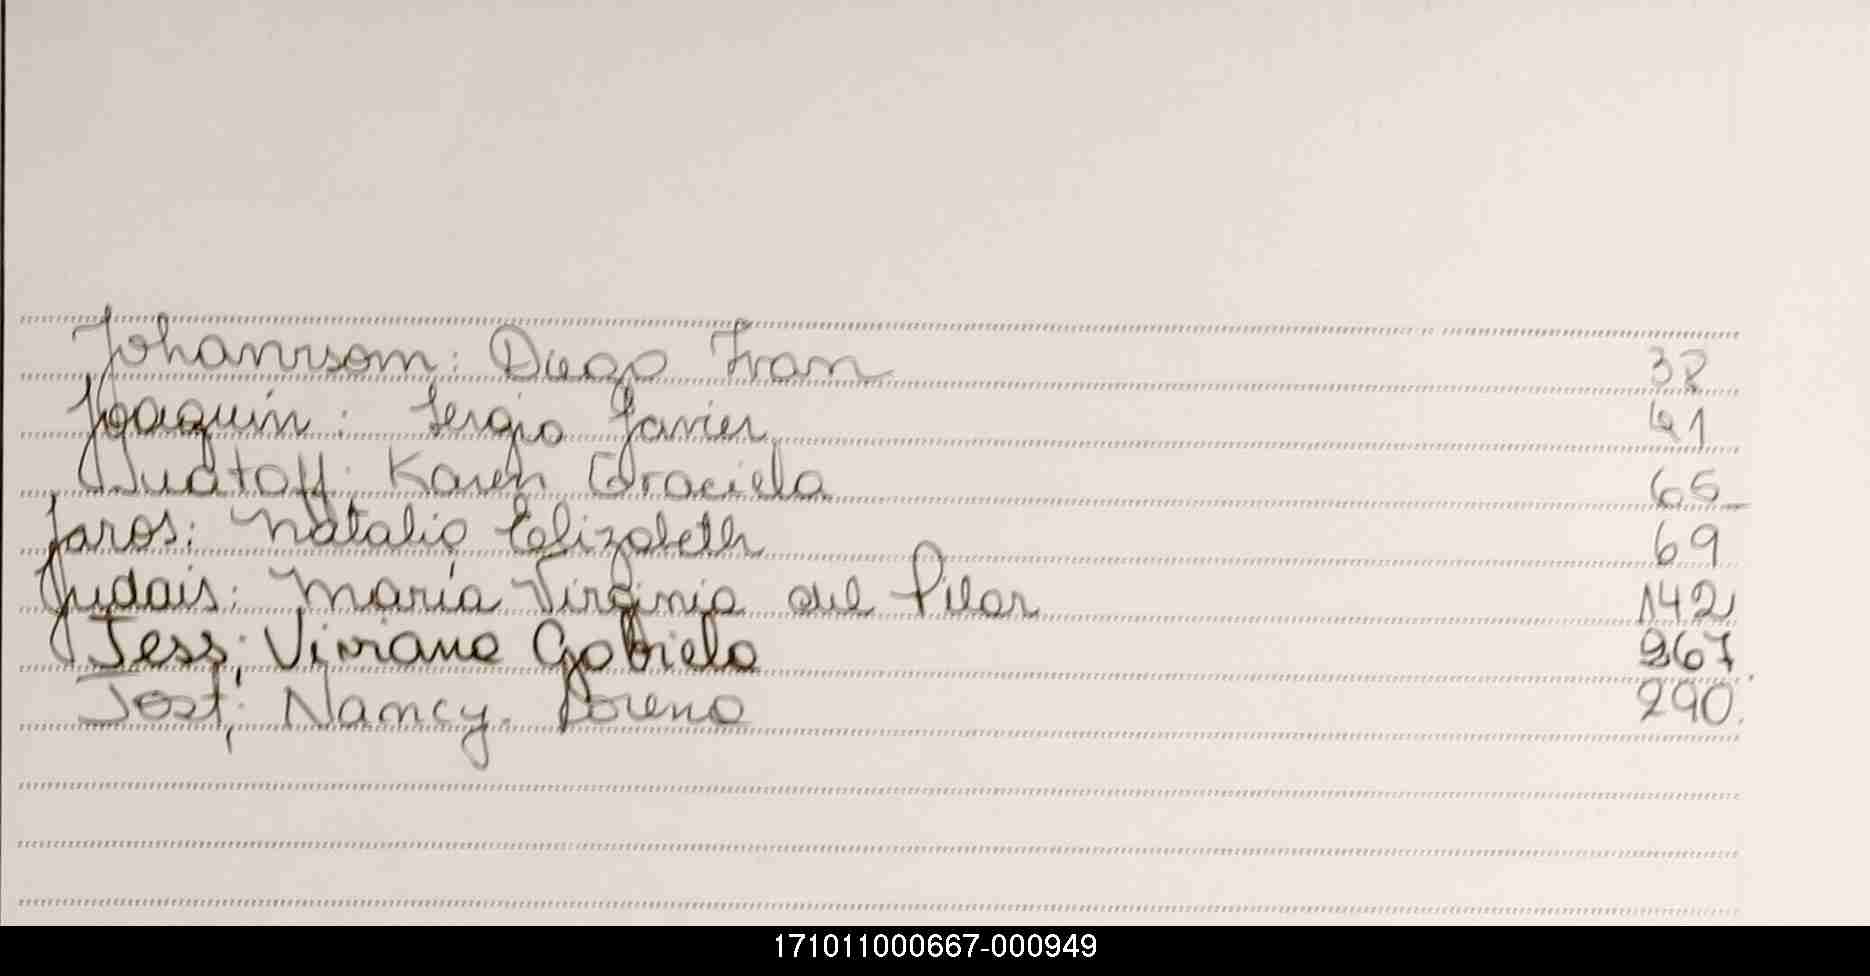 Johannsom: Diego Ivan 38
Joaquin: Sergio Javier 41
Karen Graciela 65
Jaros: Natalia Elizabeth 69
Judais: María Virginia del Pilar 142
Jess; Viviana Gabriela 267
Jost; Nancy. Lorena 290.
171011000667-000949